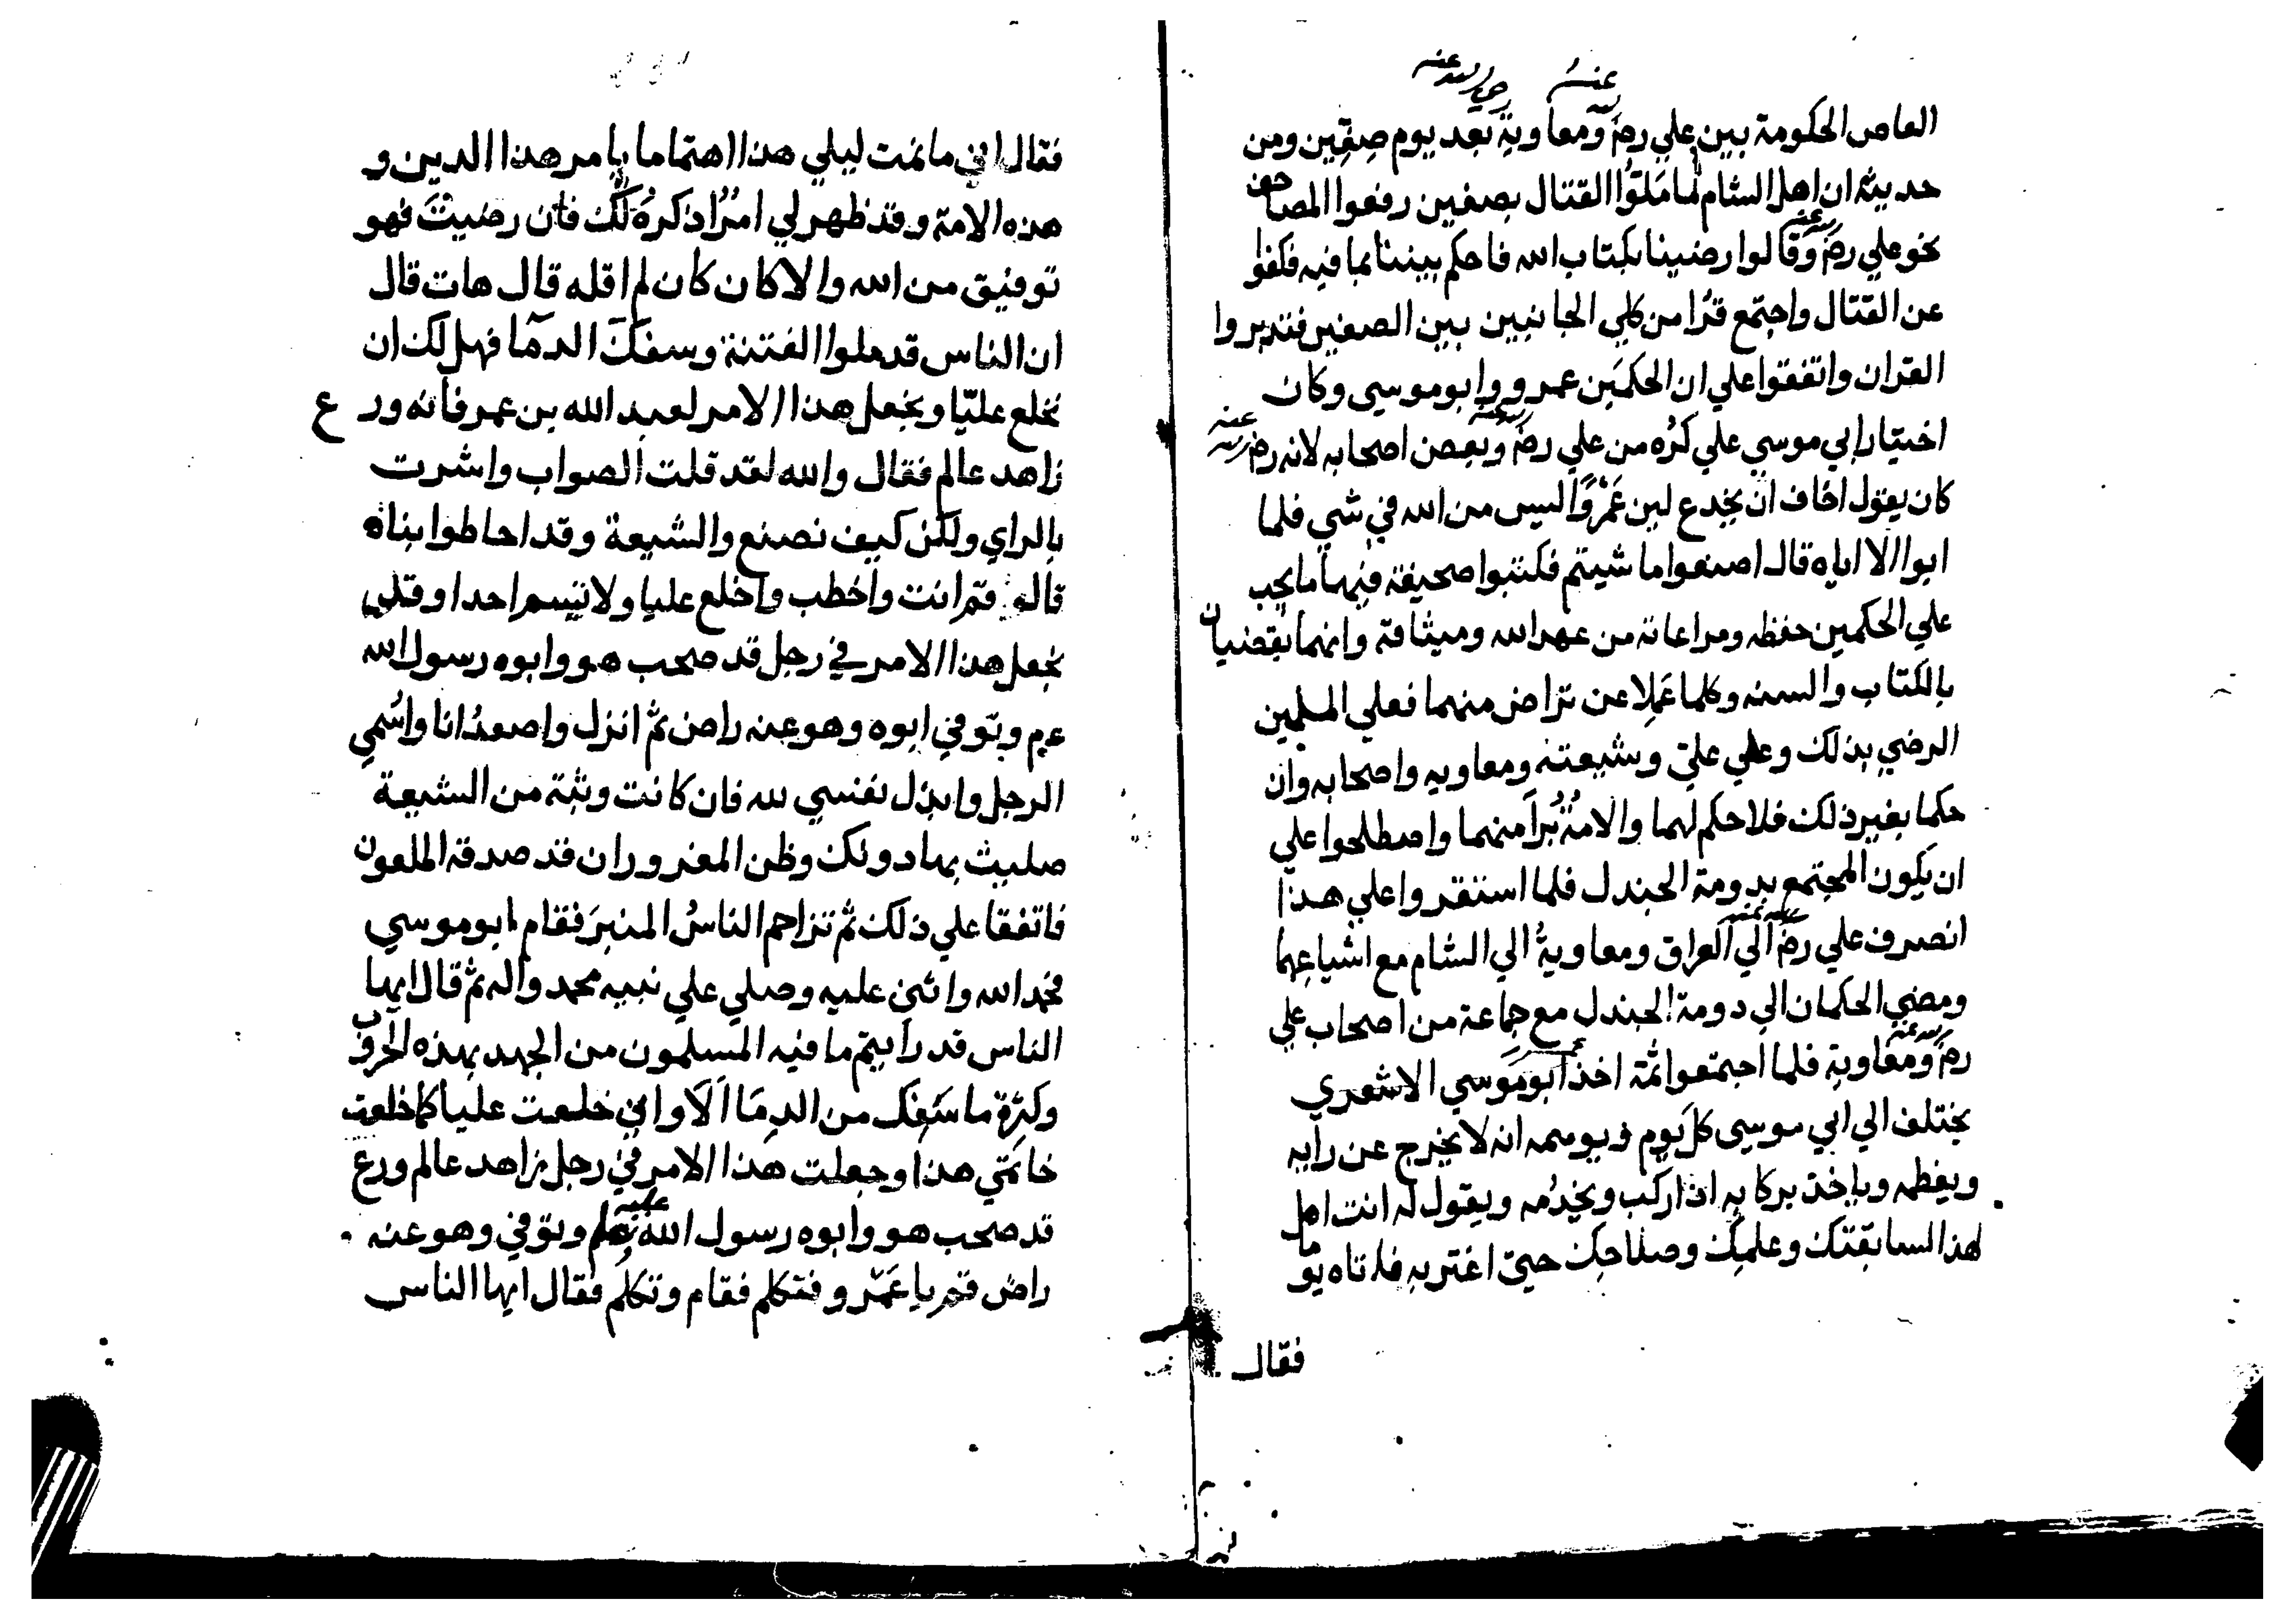 العاص الحكومة بين علي رضه ومعاوية بعد يوم صفين ومن
حديثه ان اهل الشام لما ملوا القتال بصفين رفعوا المصاحف
نحو علي رضه وقالوا رضينا بكتاب الله فاحكم بيننا بما فيه فكفوا
عن القتال واجتمع قرا من كلي الجانبين بين الصفين فتدبروا
القران واتفقوا علي ان الحكمين عمرو وابو موسي وكان
اختيار ابي موسي علي كره من علي رضه وبعض اصحابه لانه رضه
كان يقول اخاف ان يخدع لين عمروا ليس من الله في شي فلما
ابوا الا اياه قال اصنعوا ما شيتم فكتبوا صحيفة فيها ما يجب
علي الحكمين حفظه ومراعاته من عهد الله وميثاقه وانهما يقضيان
بالكتاب والسنه وكلما عملا عن تراض منهما فعلي المسلمين
الرضي بذلك وعلي علي وشيعته ومعاويه واصحابه وان
حكما بغير ذلك فلا حكم لهما والامة برا منهما واصطلحوا علي
ان يكون المجتمع بدومة الجندل فلما استقروا علي هذا
انصرف علي رضه الي العراق ومعاوية الي الشام مع اشياعهما
ومضي الحكمان الي دومة الجندل مع جماعة من اصحاب علي
رضه ومعاوية فلما اجتمعوا ثمة اخذ ابو موسي الاشعري
يختلف الي ابي موسي كل يوم ويوسمه انه لا يخرج عن رايه
ويعظمه وياخذ بركابه اذا ركب ويخدمه ويقول له انت اهل
لهذا لسابقتك وعلمك وصلاحك حتي اغتر به فاتاه يوما
فقال
فقال اني ما نمت ليلي هذا اهتماما بامر هذا الدين و
هذه الامة وقد ظهر لي امرا ذكره لك فان رضيت فهو
توفيق من الله والا كان كان لم اقله قال هات قال
ان الناس قد ملوا الفتنة وسفك الدما فهل لك ان
نخلع عليا ونجعل هذا الامر لعبد الله بن عمر فانه ورع
زاهد عالم فقال والله لقد قلت الصواب واشرت
بالراي ولكن كيف نصنع والشيعة وقد احاطوا بناه
قال قم انت واخطب واخلع عليا ولا تسم احدا وقل
نجعل هذا الامر في رجل قد صحب هو وابوه رسول الله
عم وتوفي ابوه وهو عنه راض ثم انزل واصعد انا واسمي
الرجل وابذل نفسي لله فان كانت وثبة من الشيعة
صليت بها دونك وظن المغرور ان قد صدقه الملعون
فاتفقا علي ذلك ثم تزاحم الناس المنبر فقام ابو موسي
فحمد الله واثني عليه وصلي علي نبيه محمد واله ثم قال ايها
الناس قد رايتم ما فيه المسلمون من الجهد بهذه الحروب
وكثرة ما سفك من الدما الا واني خلعت عليا كما خلعت
خاتمي هذا وجعلت هذا الامر في رجل زاهد عالم ورع
قد صحب هو وابوه رسول الله عليه وتوفي وهو عنه
راض قم يا عمرو فتكلم فقام وتكلم فقال ايها الناس